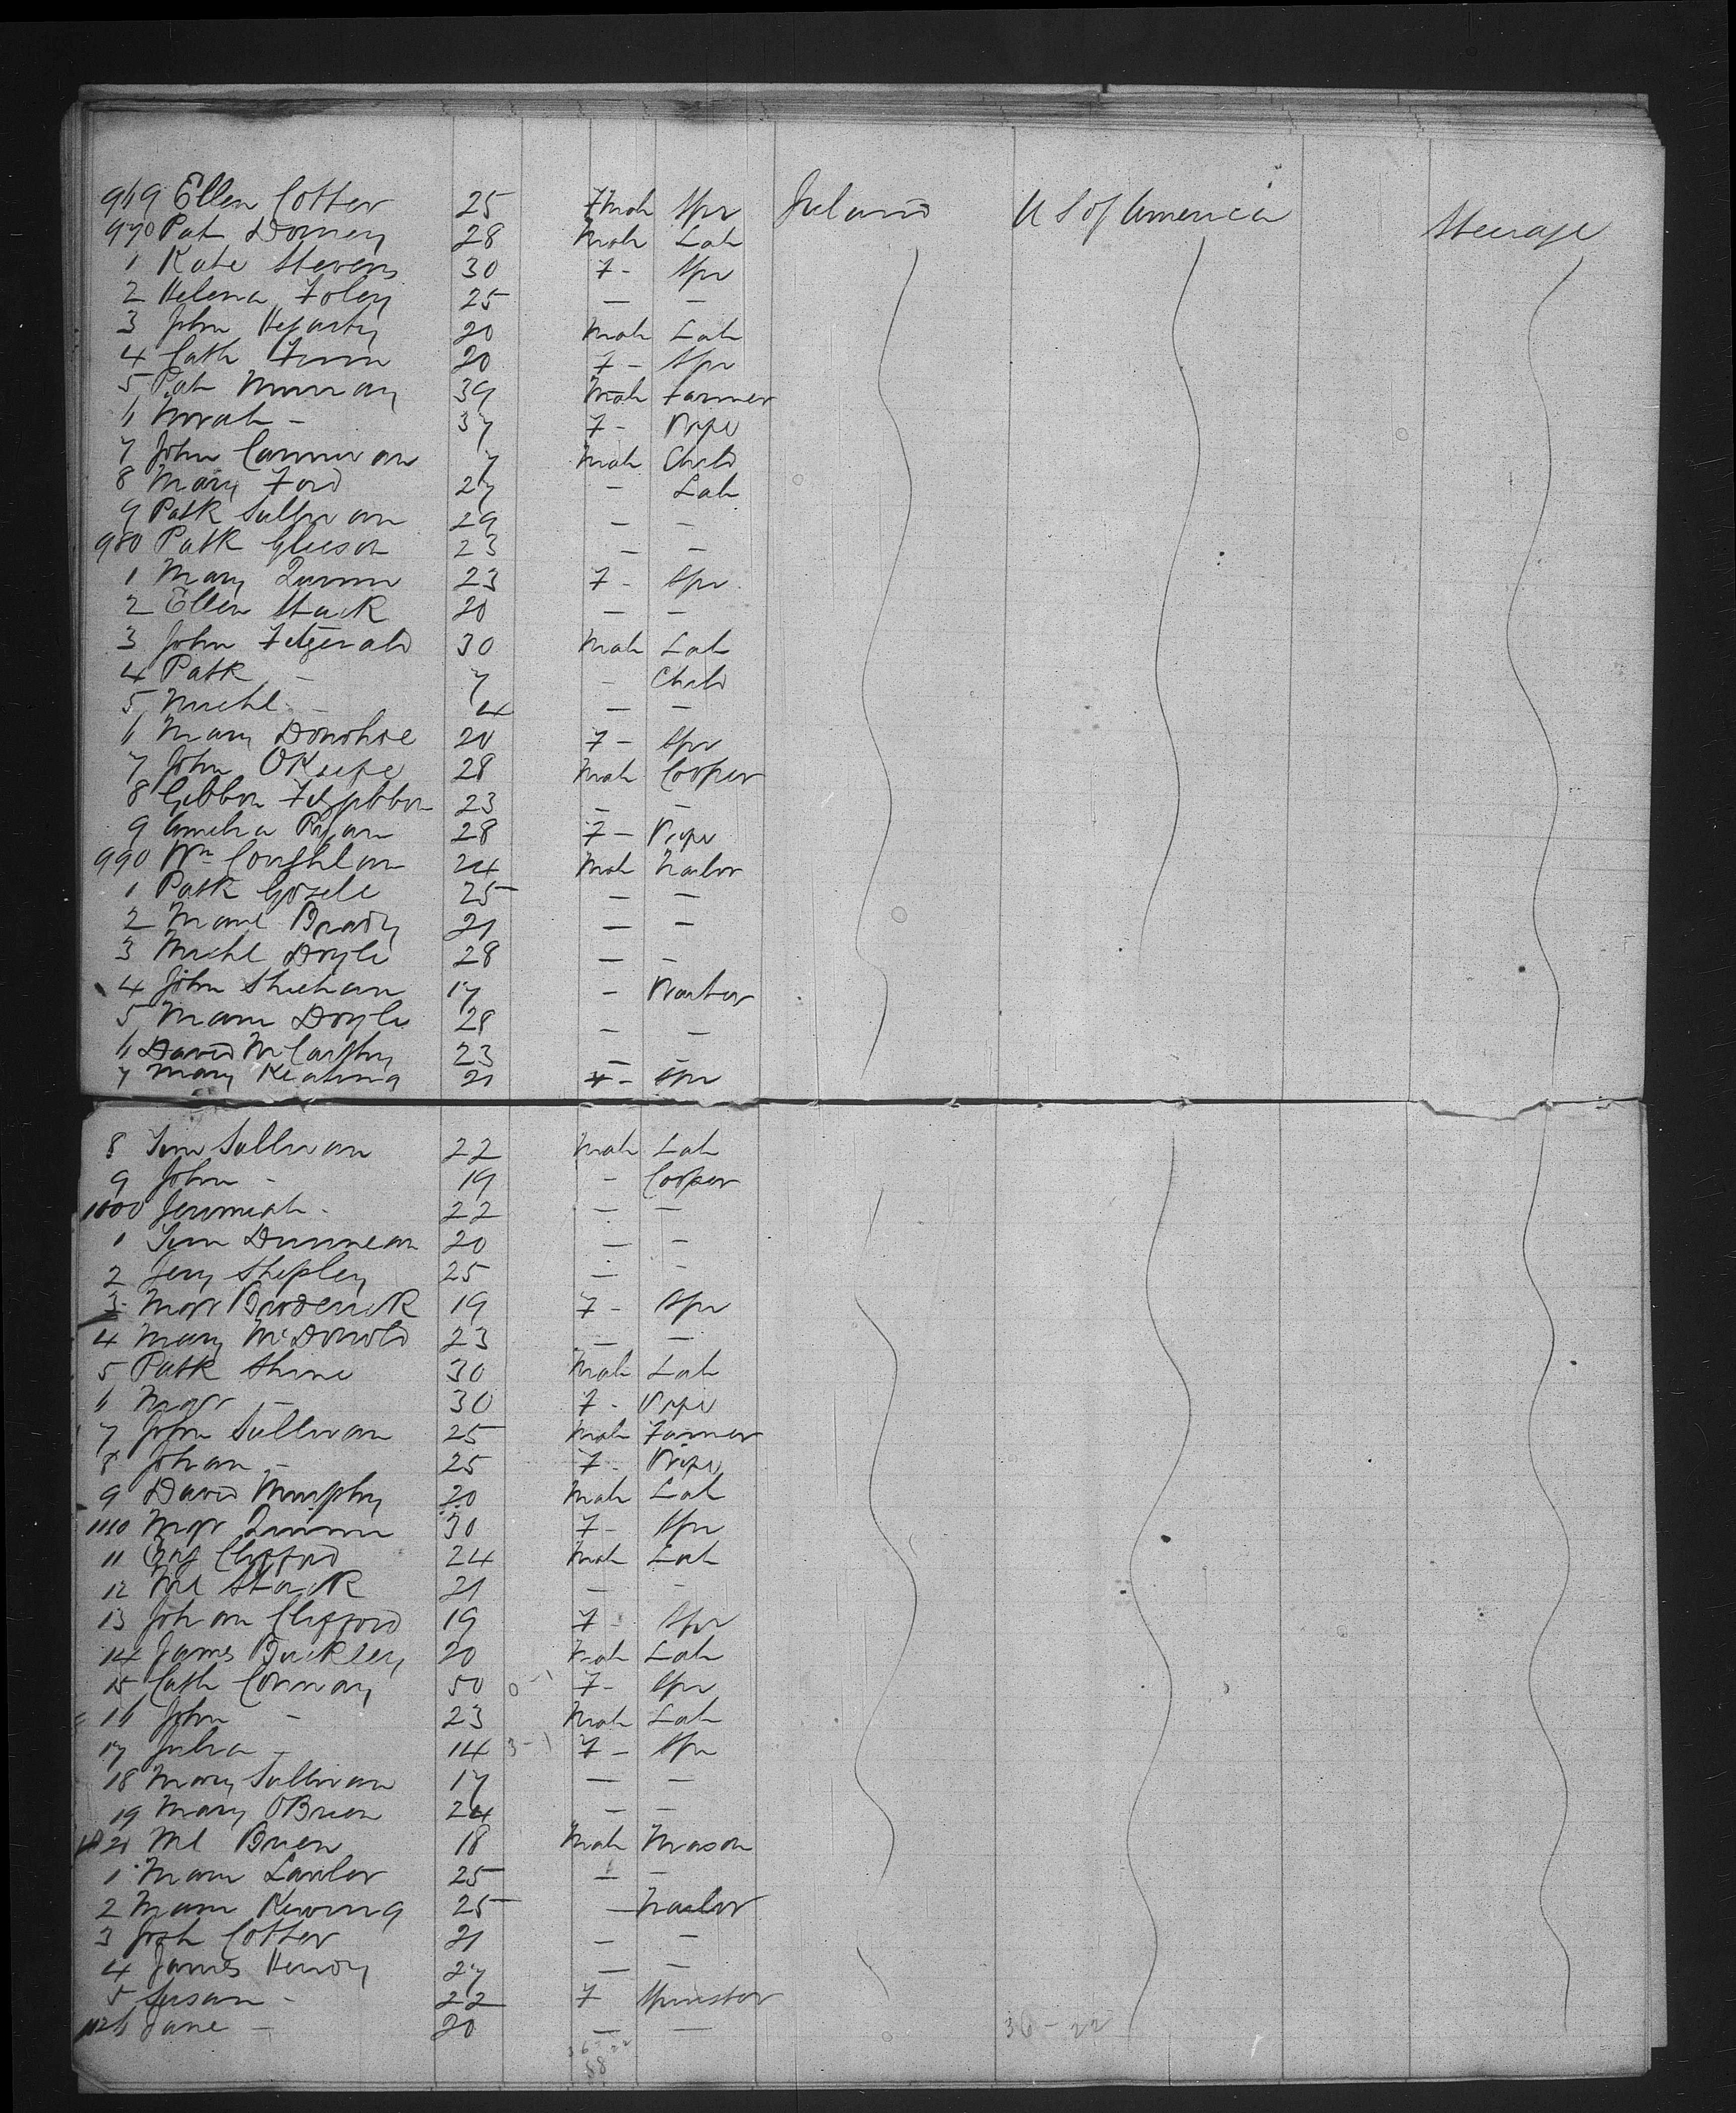 969 Ellen Cotter 25 Fmale Spr Ireland U S of America Steerage
970 Pat Dorney 28 Male Lab
1 Kate Stevens 30 F - Spr
2 Helena Foley 25 — —
3 John Hegarty 20 Male Lab
4 Cath Finn 20 F - Spr
5 Pat Murray 39 Male Farmer
6 Norah - 37 F - Wife
7 John Cannivan 7 Male Child
8 Mary Ford 27 - Lab
9 Patk Sullivan 29 — —
980 Patk Gleeson 23 — —
1 Mary Quinn 23 F - Spr
2 Ellen Stack 20 — —
3 John Fitzgerald 30 Male Lab
4 Patk - 7 - Child
5 Michl - 4 — —
6 Mary Donohoe 20 F - Spr
7 John OKeefe 28 Male Cooper
8 Gibbon Fitzgibbon 23 — —
9 Amelia Ryan 28 F - Wife
990 Wm Coughlan 24 Male Nailor
1 Patk 25 — —
2 Brady 21 — —
3 Michl Doyle 28 — —
4 John Sheehan 17 -
5 Doyle 28 — —
6 David McCarthy 23 — —
7 Mary Keating 21 F - Spr
8 Tim Sullivan 22 Male Lab
9 John - 19 - Cooper
1000 Jeremiah - 22 — —
1 Tim 20 — —
2 Jery Shepley 25 — —
3 Mgr Broderick 19 F - Spr
4 Mary McDonold 23 — —
5 Patk Shine 30 Male Lab
6 Mgr - 30 F - Wife
7 John Sullivan 25 Male Farmer
8 Johan - 25 F - Wife
9 David Murphy 20 Male Lab
1010 Mgr Quinn 30 F - Spr
11 Clifford 24 Male Lab
12 Ml Stack 21 — —
13 Johan Clifford 19 F - Spr
14 James Buckley 20 Male Lab
15 Cath Conway 50 0-1 F - Spr
16 John - 23 Male Lab
17 Julia - 14 3-1 F - Spr
18 Mary Sullivan 17 — —
19 Mary OBrien 24 — —
1020 Ml Brien 18 Male Mason
1 Lawlor 25 — —
2 25 — Nailor
3 Josh Cotter 21 — —
4 James Hendy 27 — —
5 Susan - 22 F Spinster
1026 Jane - 20 — —
36-22 36-22
58